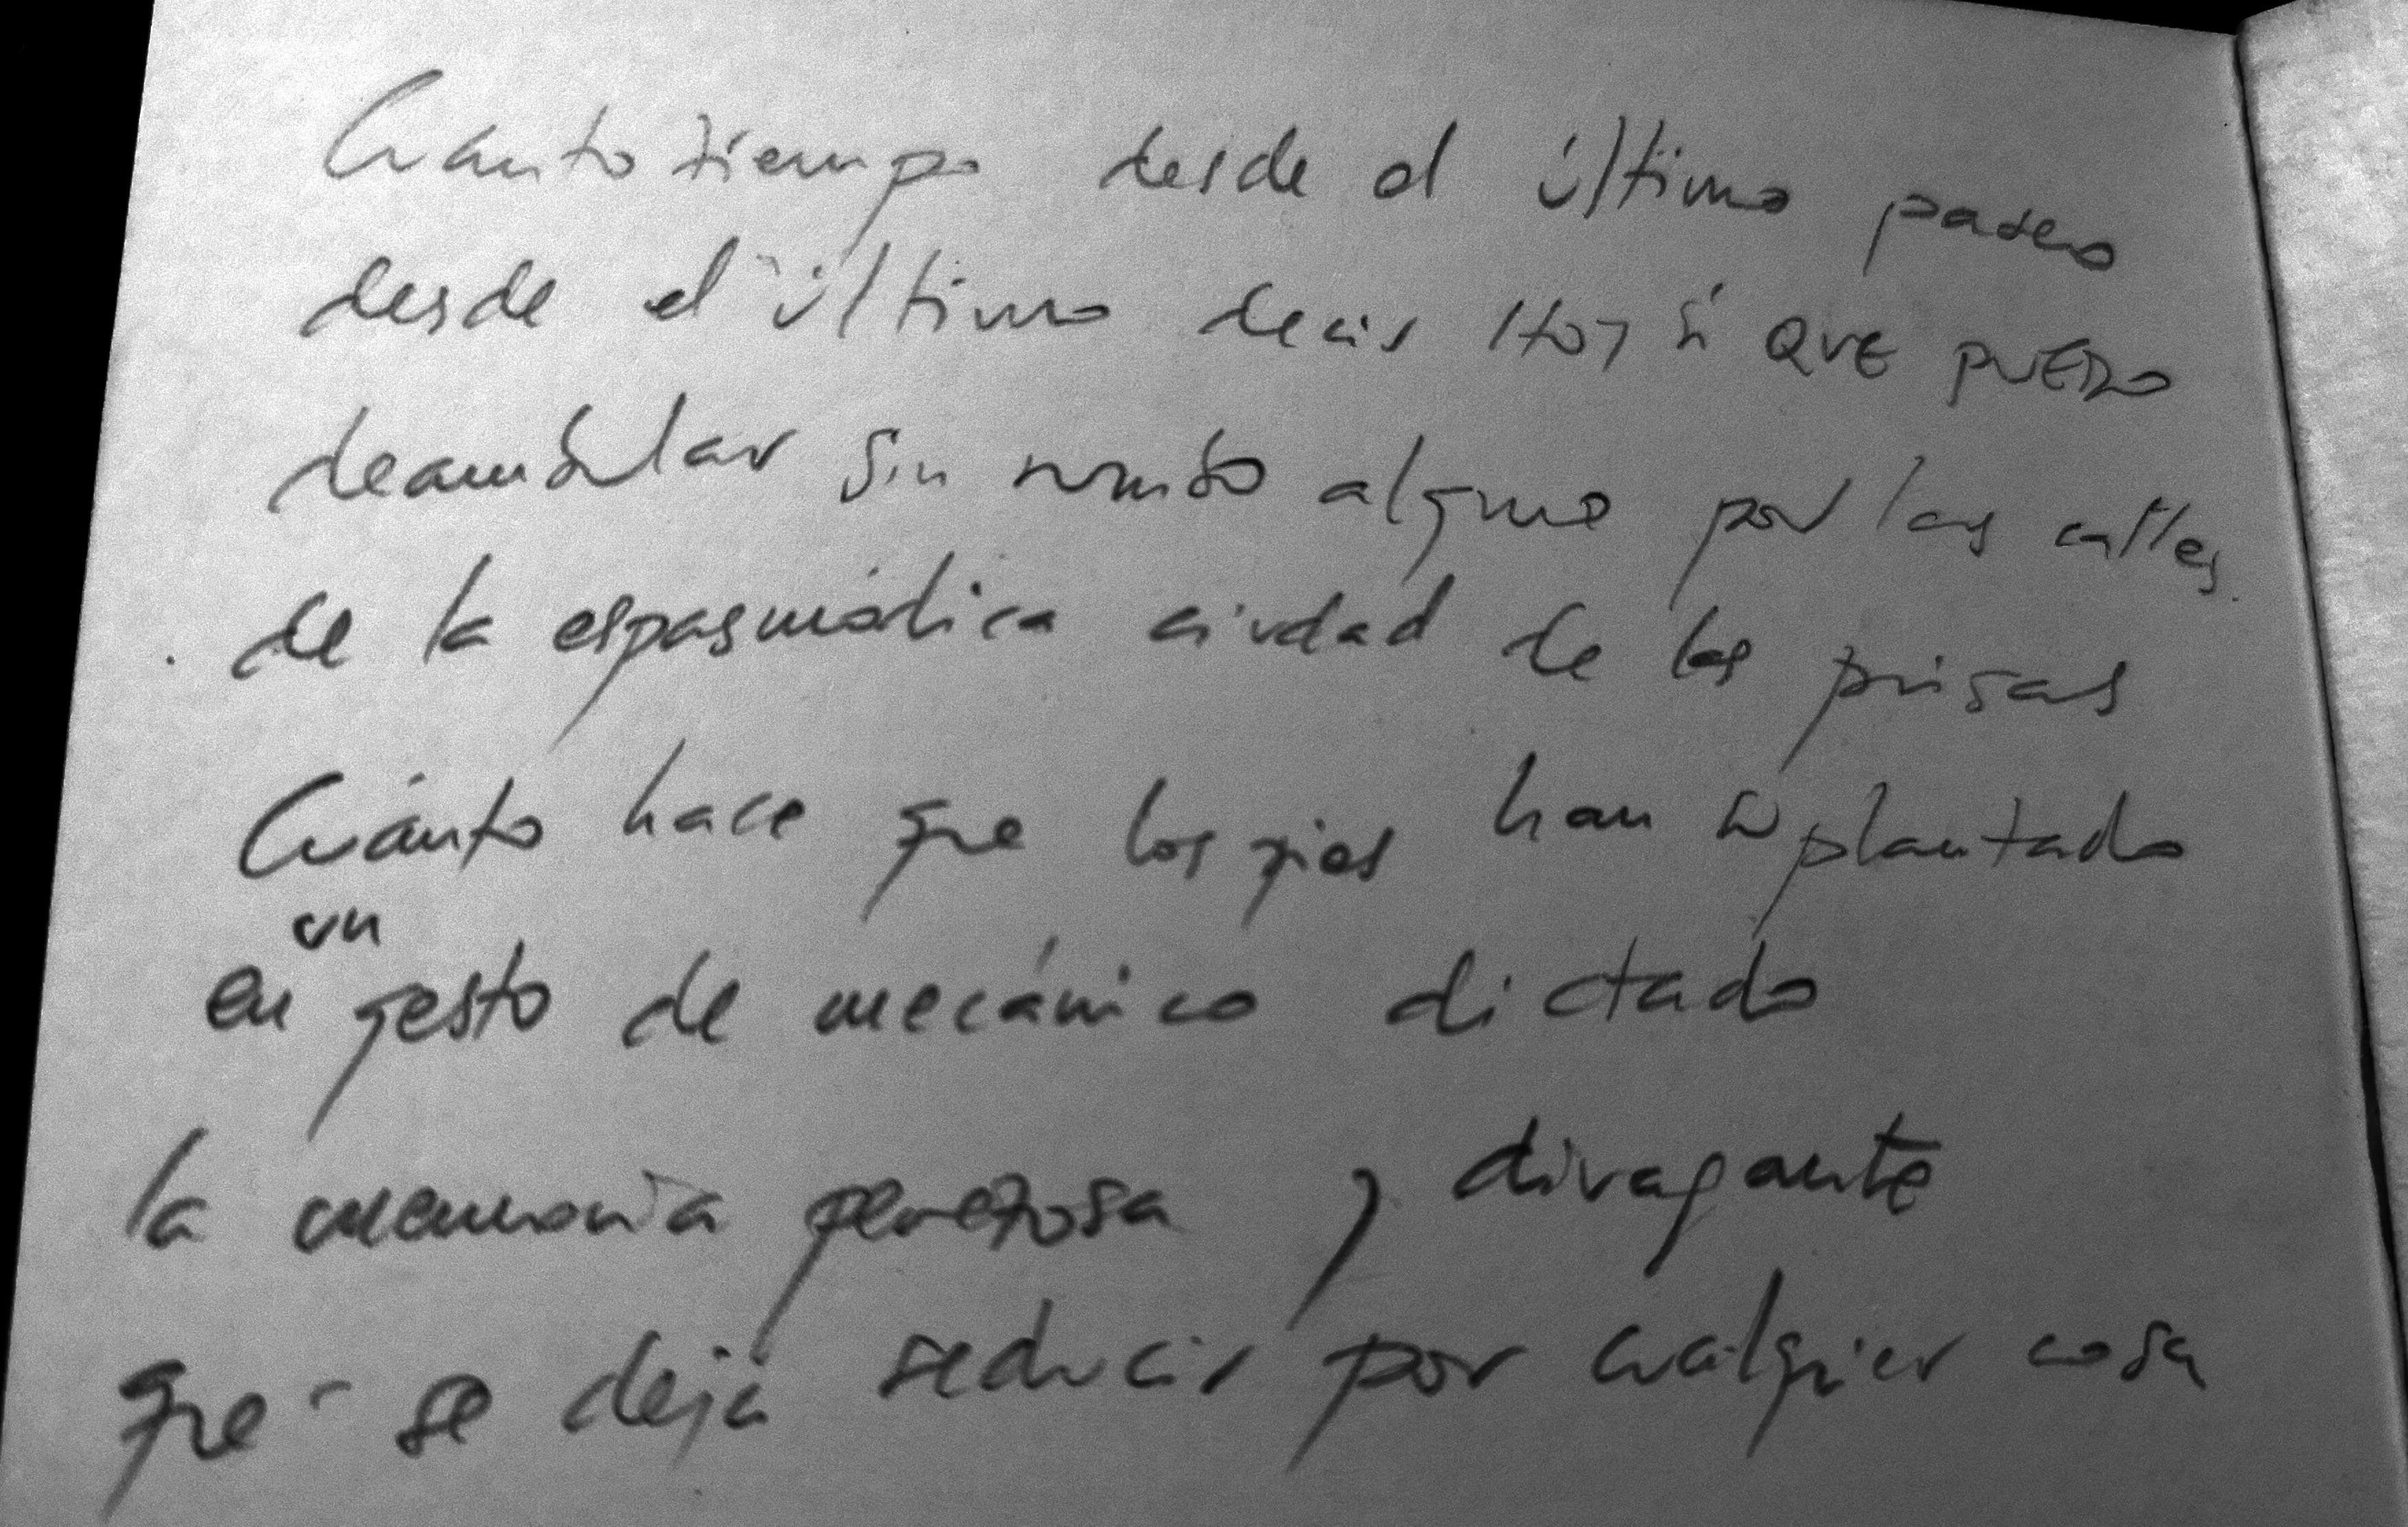 Cuanto tiempo desde el último paseo
desde el último decir HOY SÍ QUE PUEDO
deambular sin rumbo alguno por las calles
de la espasmódica ciudad de las prisas
Cuánto hace que los pies han suplantado
un
en gesto de mecánico dictado
la memoria perezosa y divagante
que se deja seducir por cualquier cosa